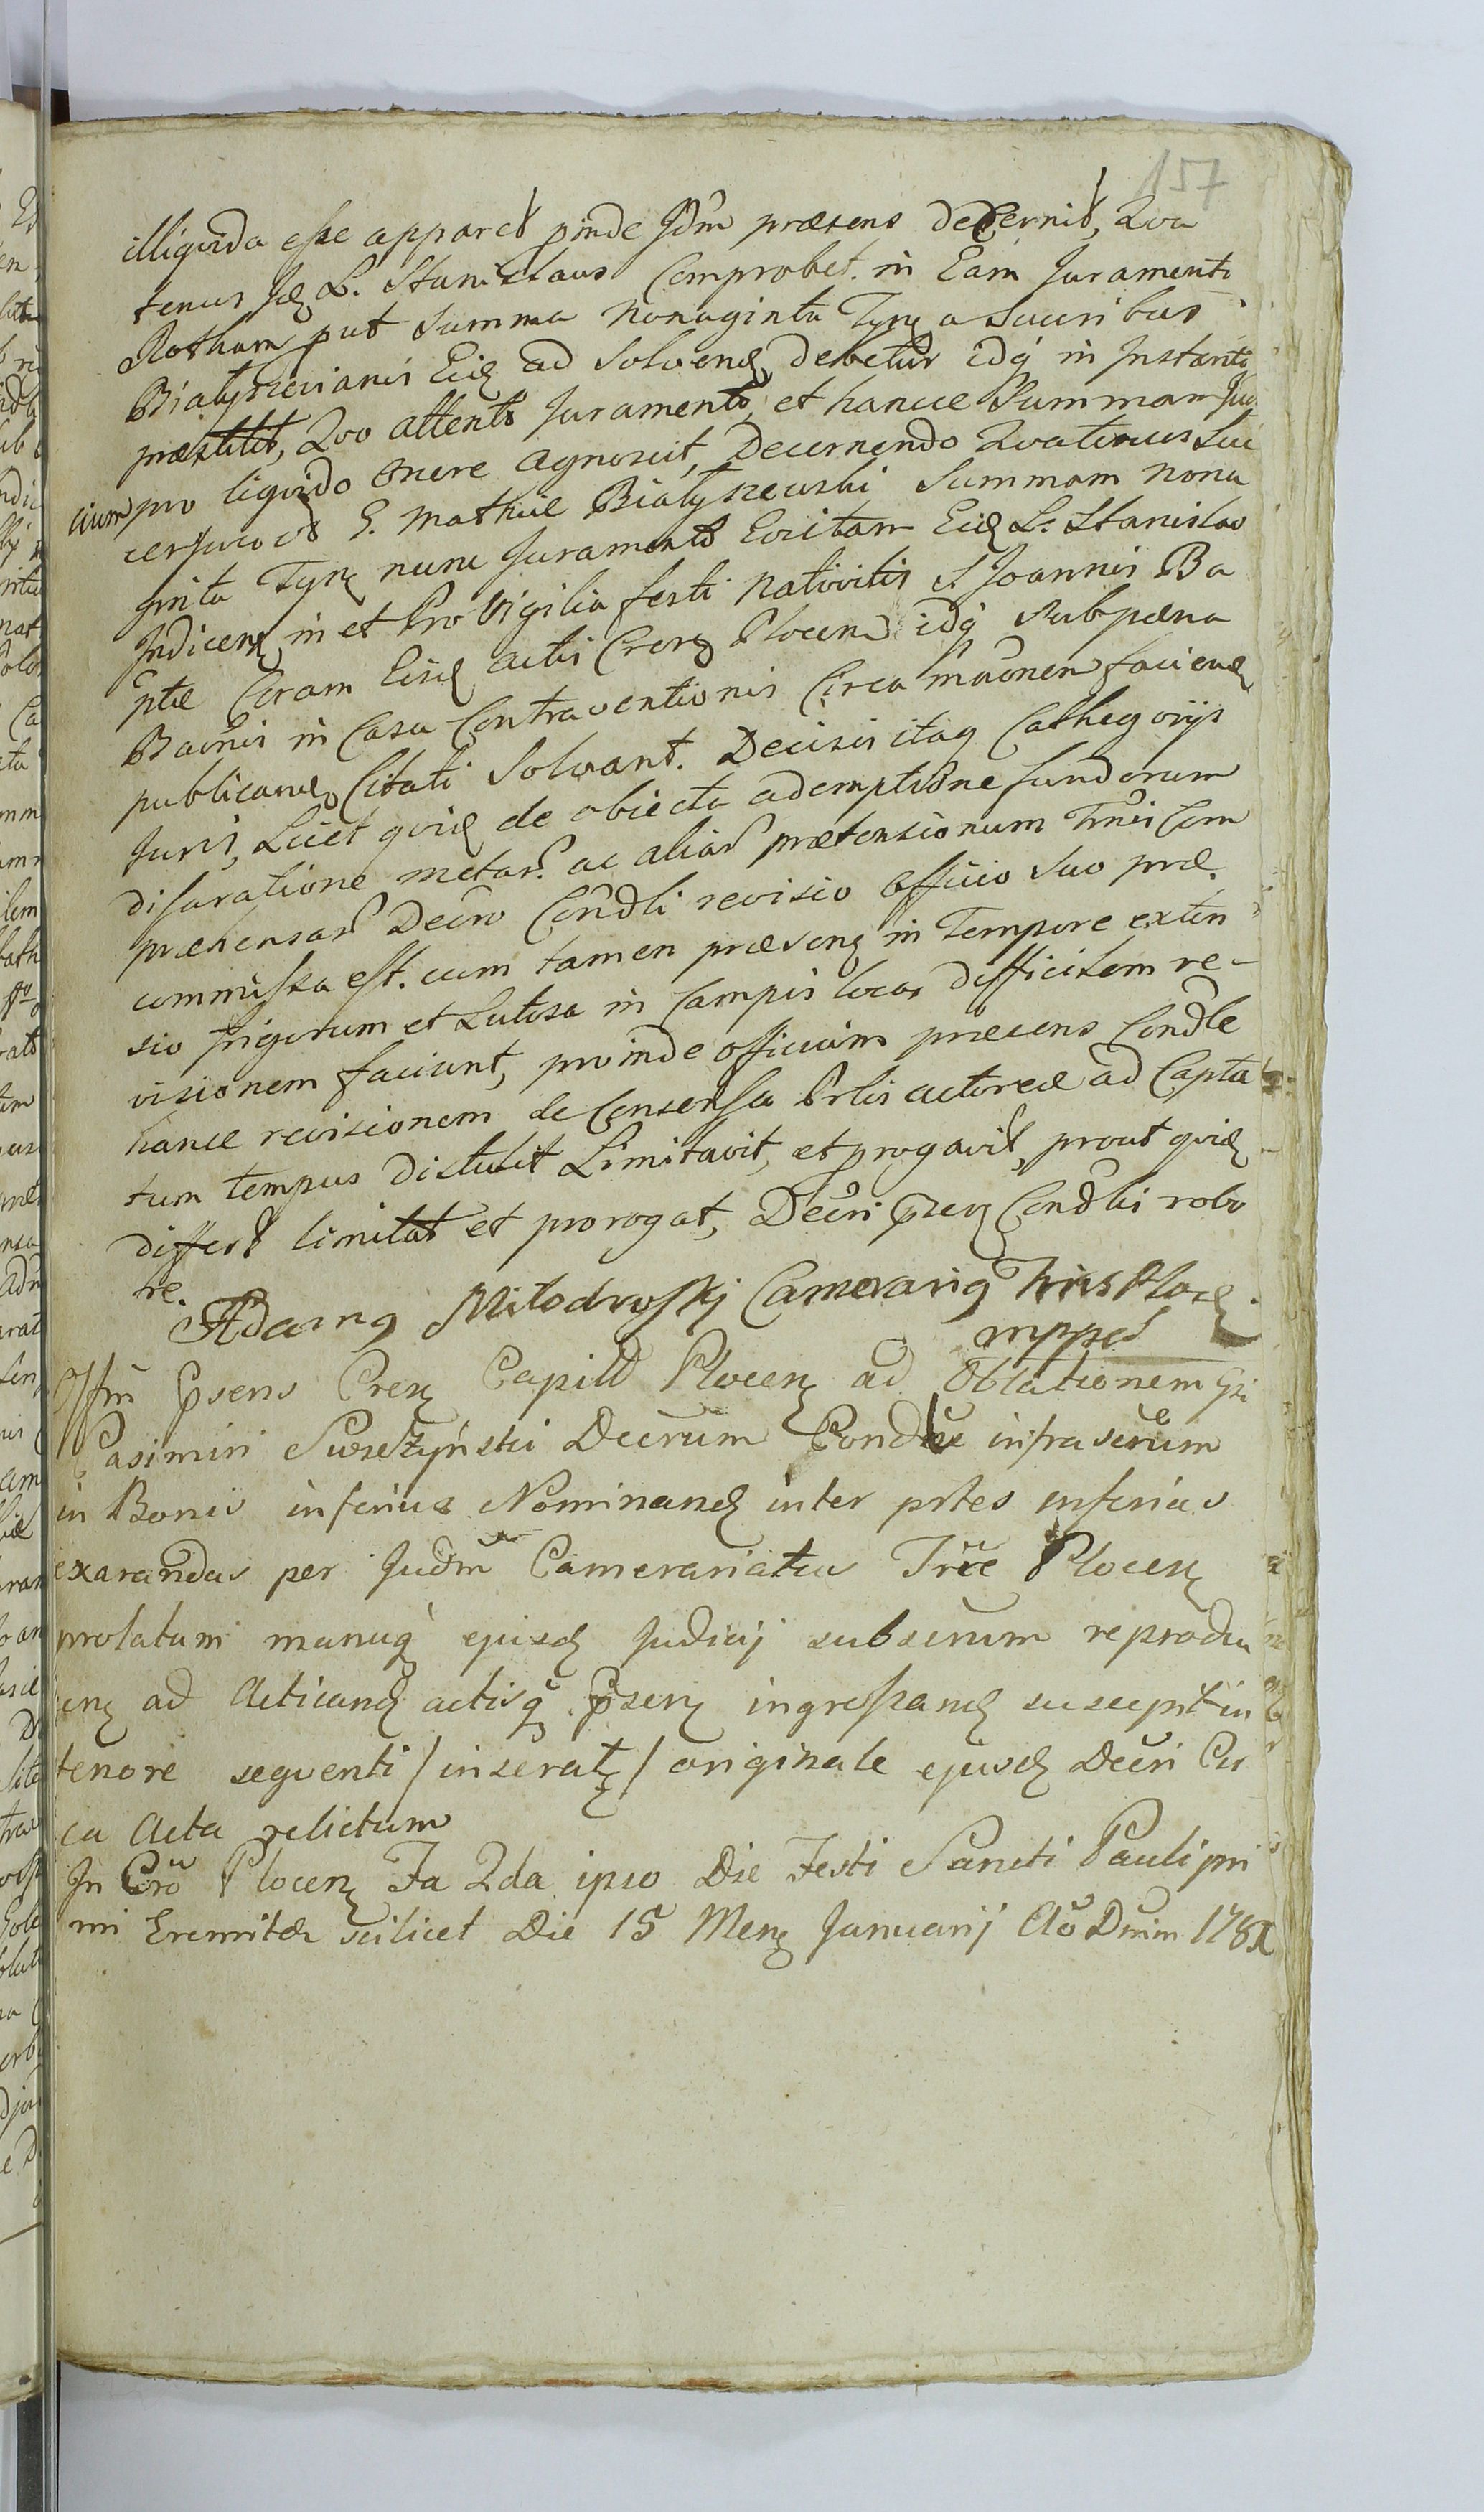 157
illiquida esse apparet pinde Jdm præsens decernit, Qua
tenus Jd L. Stanislaus Comprobet. in Eam Juramenti
Rotham put Summa Nonaginta Tyn a Succeribus
Białyszewianis Eid ad Solvend debetur idq in Instanti
præstitit, Quo attento Juramento, et hance Summam Jud
icium pro liquido onere agnoscit, Decernendo Quatenus Suc
G. Mathiæ Białyszewski Summam nona
ginta Tyn nunc Juramento Evictam Eid L. Stanislao
Judicem in et Pro Vigilia festi Nativitis S Joannis Ba
ptæ Coram Eisd actis Cren Plocen idq Sub pæna
Bannis in Casu Contraventionis Circa maonem faciend
publicand Citati Solvant. Decisis itaq Cathegorijs
Juris, Licet quid de obiecta ademptione fundorum
disaratione metar. ac aliar prætensionum Trnis Com
præhensar Decro Condli revisio officio Suo præ
commissa est. cum tamen præsens in Tempore exten
sio frigorum et Lutosa in Campis loca difficilem re-
visionem faciunt, proinde officium præsens Condle
hance revisionem de Consensu Prtis actoreæ ad Capta
tum tempus distulit Limitavit, et progavit, prout quid
differt limitat et prorogat, Decri psen Condlis robo
re.
Adamg Miłodrowskj Camerarig Trris Plocen
mppd
Offm Psens Cren Capitt Plocen ad Oblationem Gsi
Casimiri Swieżyński Decrum Condle infra scrum
in Bonis inferius Nominand inter prtes inferius
exarandas per Judm Camerariatus Trræ Plocen
prolatum manuq ejusd Judicij subscrum reprodu
cen ad Acticand actisq Psen ingrossand suscepit in
tenore sequenti / inserat / originale ejusd Decri Cir
ca Acta relictum
In Cro Plocen Fa 2da ipso Die Festi Sancti Pauli pri
mi Eremitæ scilicet Die 15 Men Januarij Ao Dnim 178